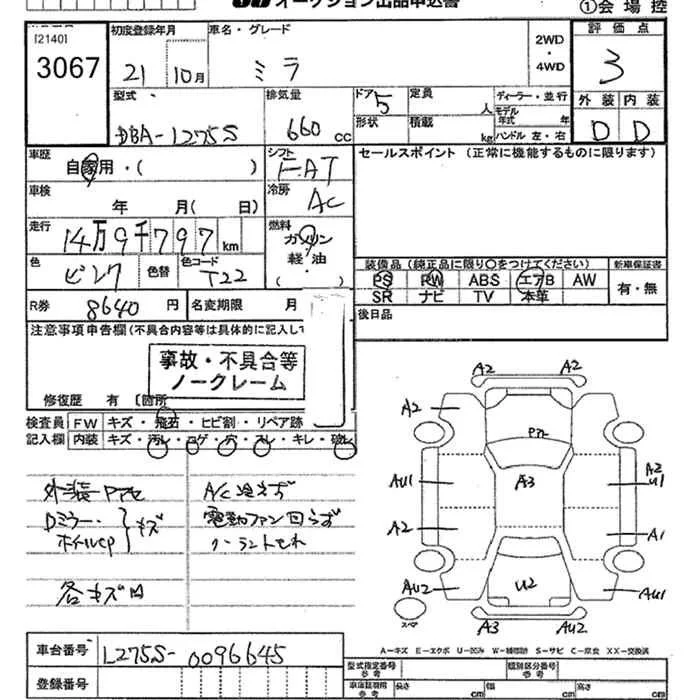 オークション出品申込書
①会場控
[2140]
3067
初度登録年月
21 10月
車名・グレード
ミラ
2WD
・
4WD
評価点
3
外装 内装
D D
型式
DBA-L275S
排気量
660 CC
ドア 5
定員 人
形状
積載 kg
ディーラー・並行
モデル年式 年
ハンドル 左・右
車歴
自家用・( )
シフト
FAT
セールスポイント (正常に機能するものに限ります)
車検
年 月( 日)
冷房
AC
走行
14万9千797km
燃料
ガソリン
軽油
( )
色
ピンク
色替
色コード
T22
装備品 (純正品に限り○をつけてください)
新車保証書
PS PW ABS エアB AW
SR ナビ TV 本革
有・無
R券
8640 円
名変期限 月
後日品
注意事項申告欄(不具合内容等は具体的に記入して
事故・不具合等
ノークレーム
修復歴 有 〔箇所
検査員
記入欄
FW キズ・飛石・ヒビ割・リペア跡
内装 キズ・汚レ・コゲ・穴・スレ・キレ・破レ
外装
Dミラー・
ホイルcp
キズ
各キズ凹
A/C冷えず
電動ファン回らず
クーラントもれ
A2 A2
A2
A3
AU1
A2
U1
A2
A1
AU2
U2
AU1
A3 AU2
スペア
A－キズ E－エクボ U－凹み W－補修跡 S－サビ C－腐食 XX－交換済
車台番号
L275S-0096645
登録番号
型式指定番号
参考
類別区分番号
参考
車庫証明用
参考
長さ cm
幅 cm
高さ cm